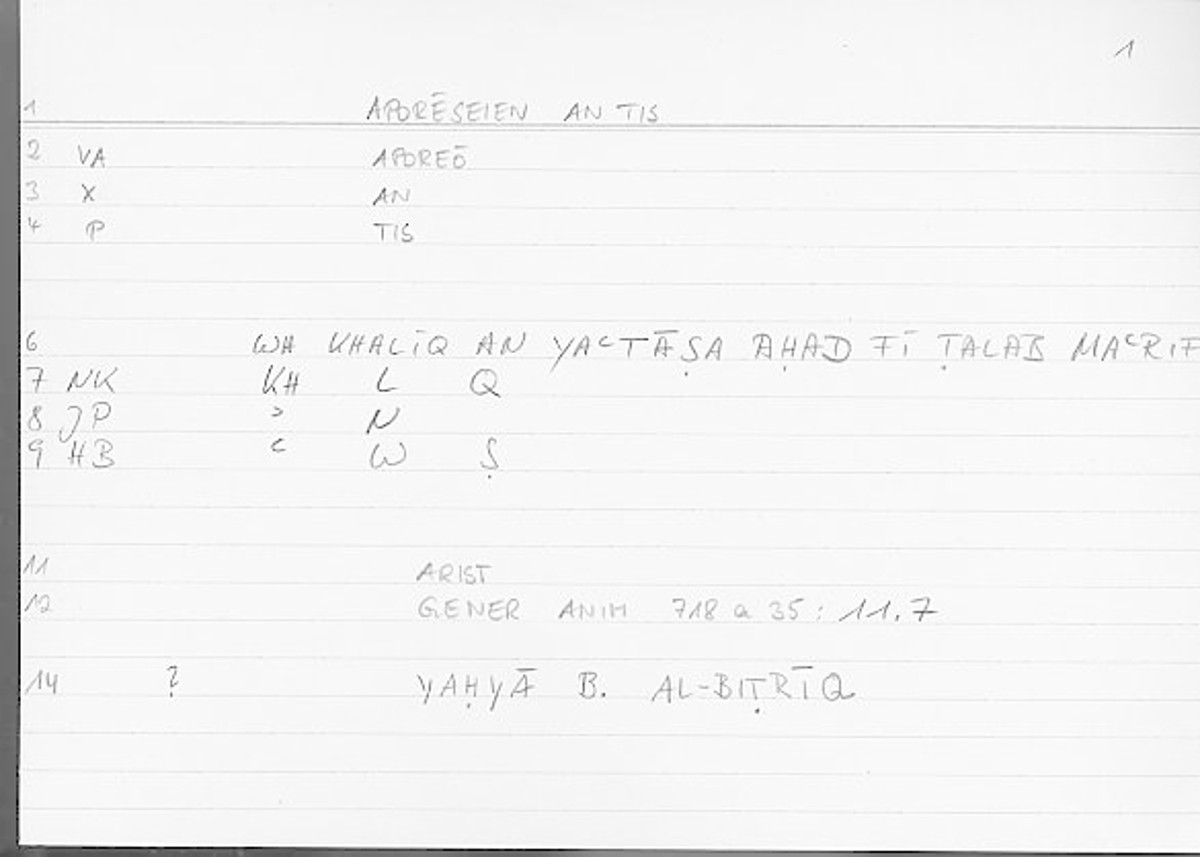 1
1 APORĒSEIEN AN TIS
2 VA APOREŌ
3 X AN
4 P TIS
6 WA KHALĪQ AN YAʿTĀṢA AḤAD FĪ ṬALAB MAʿRIF
7 NK KH L Q
8 JP ʾ N
9 HB ʿ W Ṣ
11 ARIST
12 GENER ANIM 718 a 35 : 11.7
14 ? YAḤYĀ B. AL-BIṬRĪQ